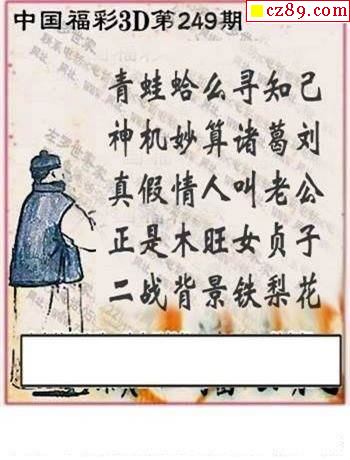 cz89.com
中国福彩3D第249期
青蛙蛤么寻知己
神机妙算诸葛刘
真假情人叫老公
正是木旺女贞子
二战背景铁梨花